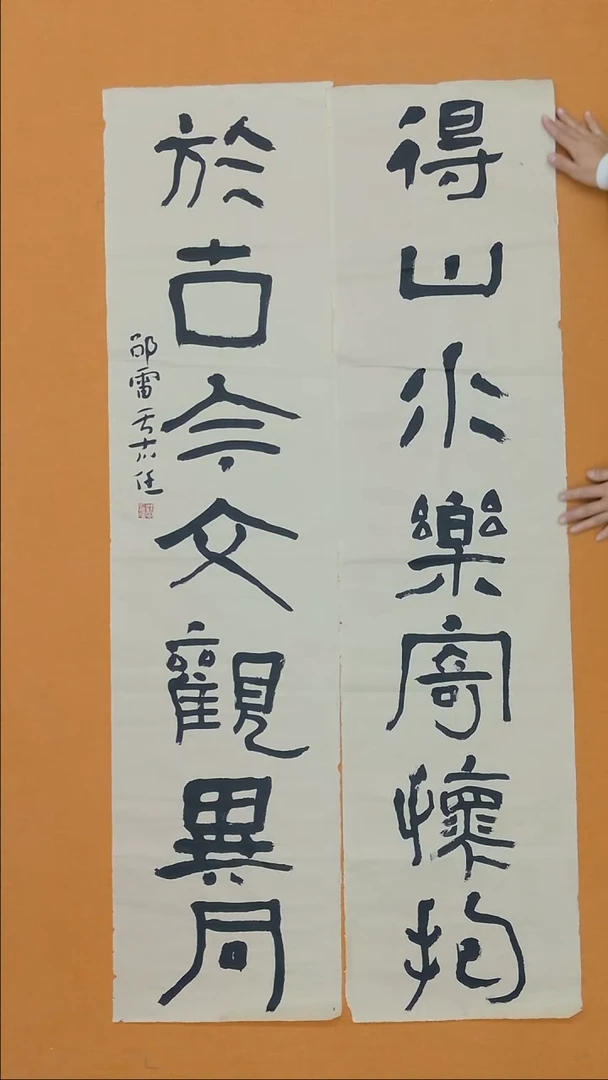 得山水樂寄懷抱
於古今文觀異同
邵雷於京廷